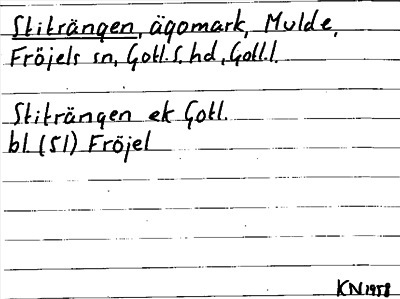 Stiträngen, ägomark, Mulde,
Fröjels sn, Gotl. S. hd, Gotl. l.
Stiträngen ek Gotl.
bl (51) Fröjel
KN 1958